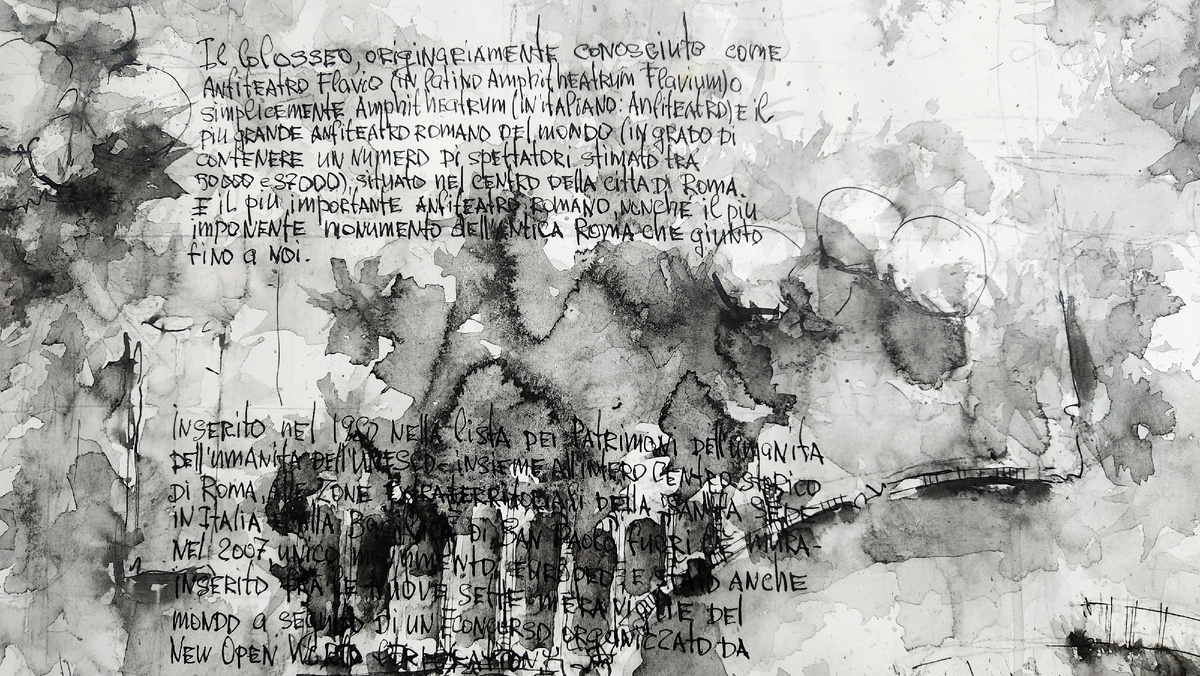 Il Colosseo, originariamente conosciuto come
Anfiteatro Flavio (in latino Amphitheatrum Flavium) o
simplicemente Amphitheatrum (in italiano: Anfiteatro) e il
più grande anfiteatro romano del mondo (in grado di
contenere un numero di spettatori stimato tra
50000 e 87000), situato nel centro della città di Roma.
E il più importante anfiteatro romano, nonché il più
imponente monumento dell'antica Roma che giunto
fino a noi.
Inserito nel nella lista dei Patrimoni dell'umanità
dell'umanità dell'UNESCO insieme all'intero Centro storico
di Roma, alle zone extraterritoriali della Santa Sede
in Italia alla Basilica di San Paolo fuori le mura-
nel 2007 unico monumento europeo e stato anche
inserito tra le nuove sette meraviglie del
mondo a seguito di un concorso organizzato da
New Open World